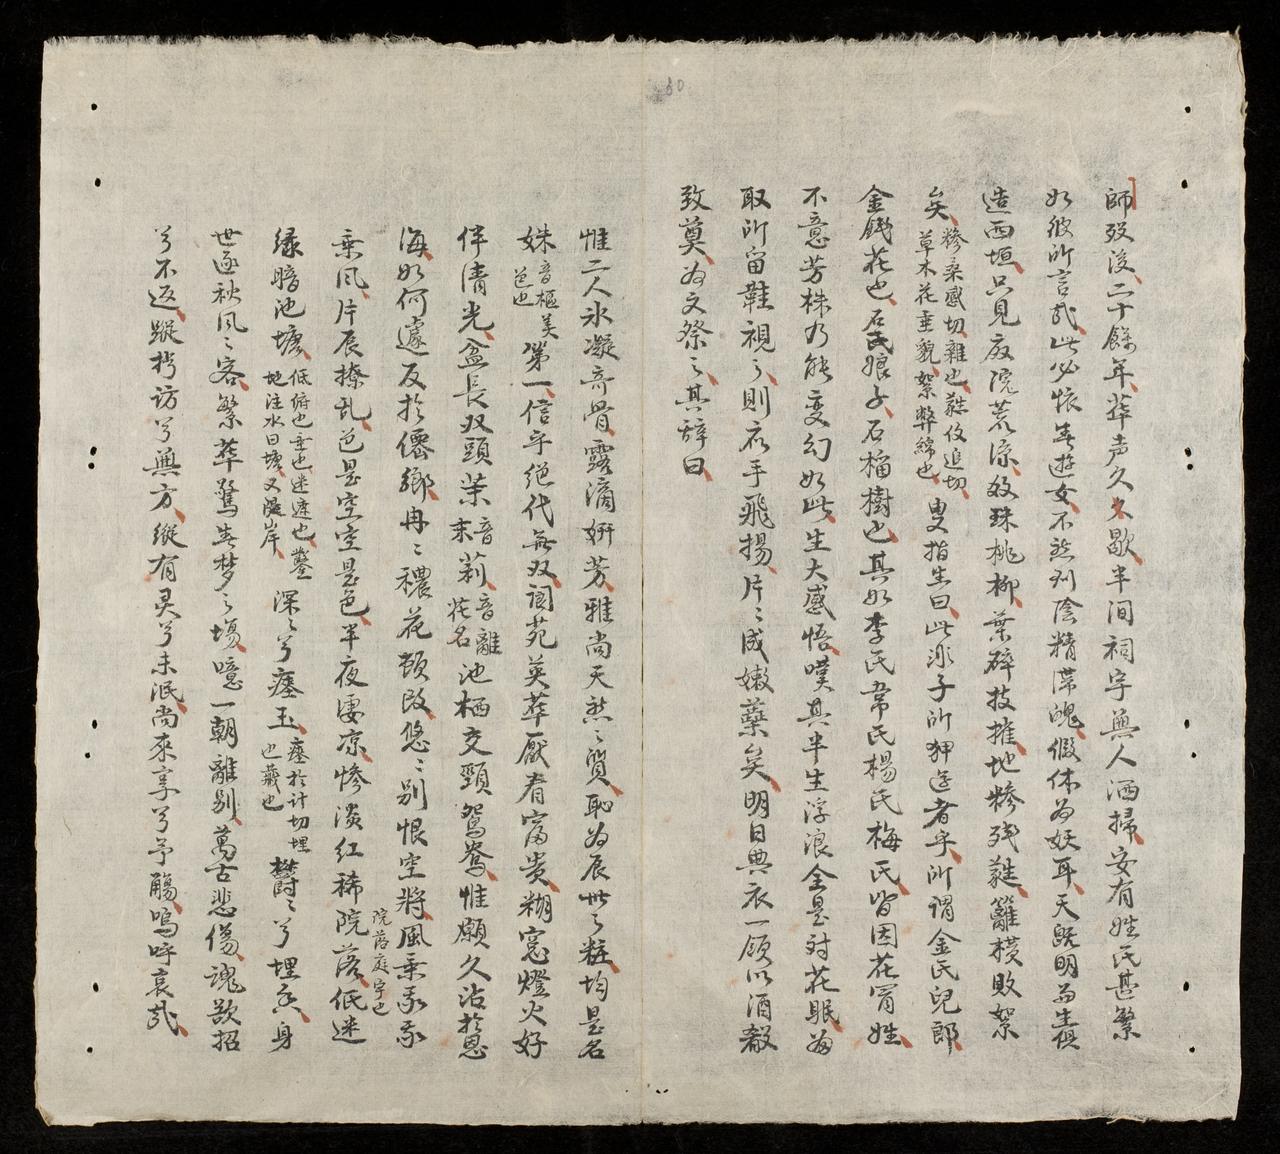 師歿後二十餘年華声久久歇半间祠宇無人洒掃安有姓氏甚繁
如彼所言哉此必怅春遊女不然則陰精滯魄假体为妖耳天既明畄生俱
造西垣只見庭院荒涼数珠桃柳葉碎技摧地糝残蕤籬横敗絮
矣糝桑感切雜也蕤伩追切草木花垂貌絮弊綿也叟指生曰此非子所狎遊者乎所謂金氏兒郎
金錢花也石氏娘子石榴樹也其如李氏韋氏楊氏梅氏皆因花冒姓
不意芳株乃能变幻如此生大感悟嘆其半生浮浪全是对花眠
取所留鞋視之則应手飛揚片〻成嫩蘂矣明日典衣一領以酒殽
致奠为文祭之其辞曰
惟二人氷凝竒骨露滴妍芳雅尚天然之質恥为辰世之粧均是名
姝音樞美色也第一信乎絶代無双閬苑英華厭看富贵糊窓燈火好
伴清光盆長双頭茉音末莉音離花名池栖交頸鴛鴦惟願久沾於恩
海如何遽反於僊鄉冉〻穠花頓改悠〻别恨空將風乗
乗风片辰撩乱色是空空是色半夜凄凉惨淡红稀院落院落庭宇也低迷
緑暗池塘低俯也垂也迷遮也鑿地注水曰塘又隄岸深〻兮瘞玉瘞於計切埋也藏也欝〻兮埋香身
世逐秋风之客繁華驚春梦之塲噫一朝離别萬古悲傷魂欲招
兮不返蹤访兮無方縱有灵兮未泯尚來享兮予觴嗚呼哀哉